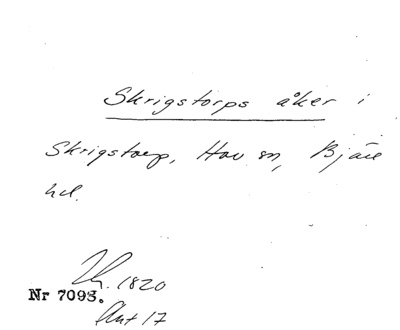 Skrigstorps åker i
Skrigstorp, Hov sn, Bjäre
hd.
1820
Nr 7093.
Akt 17